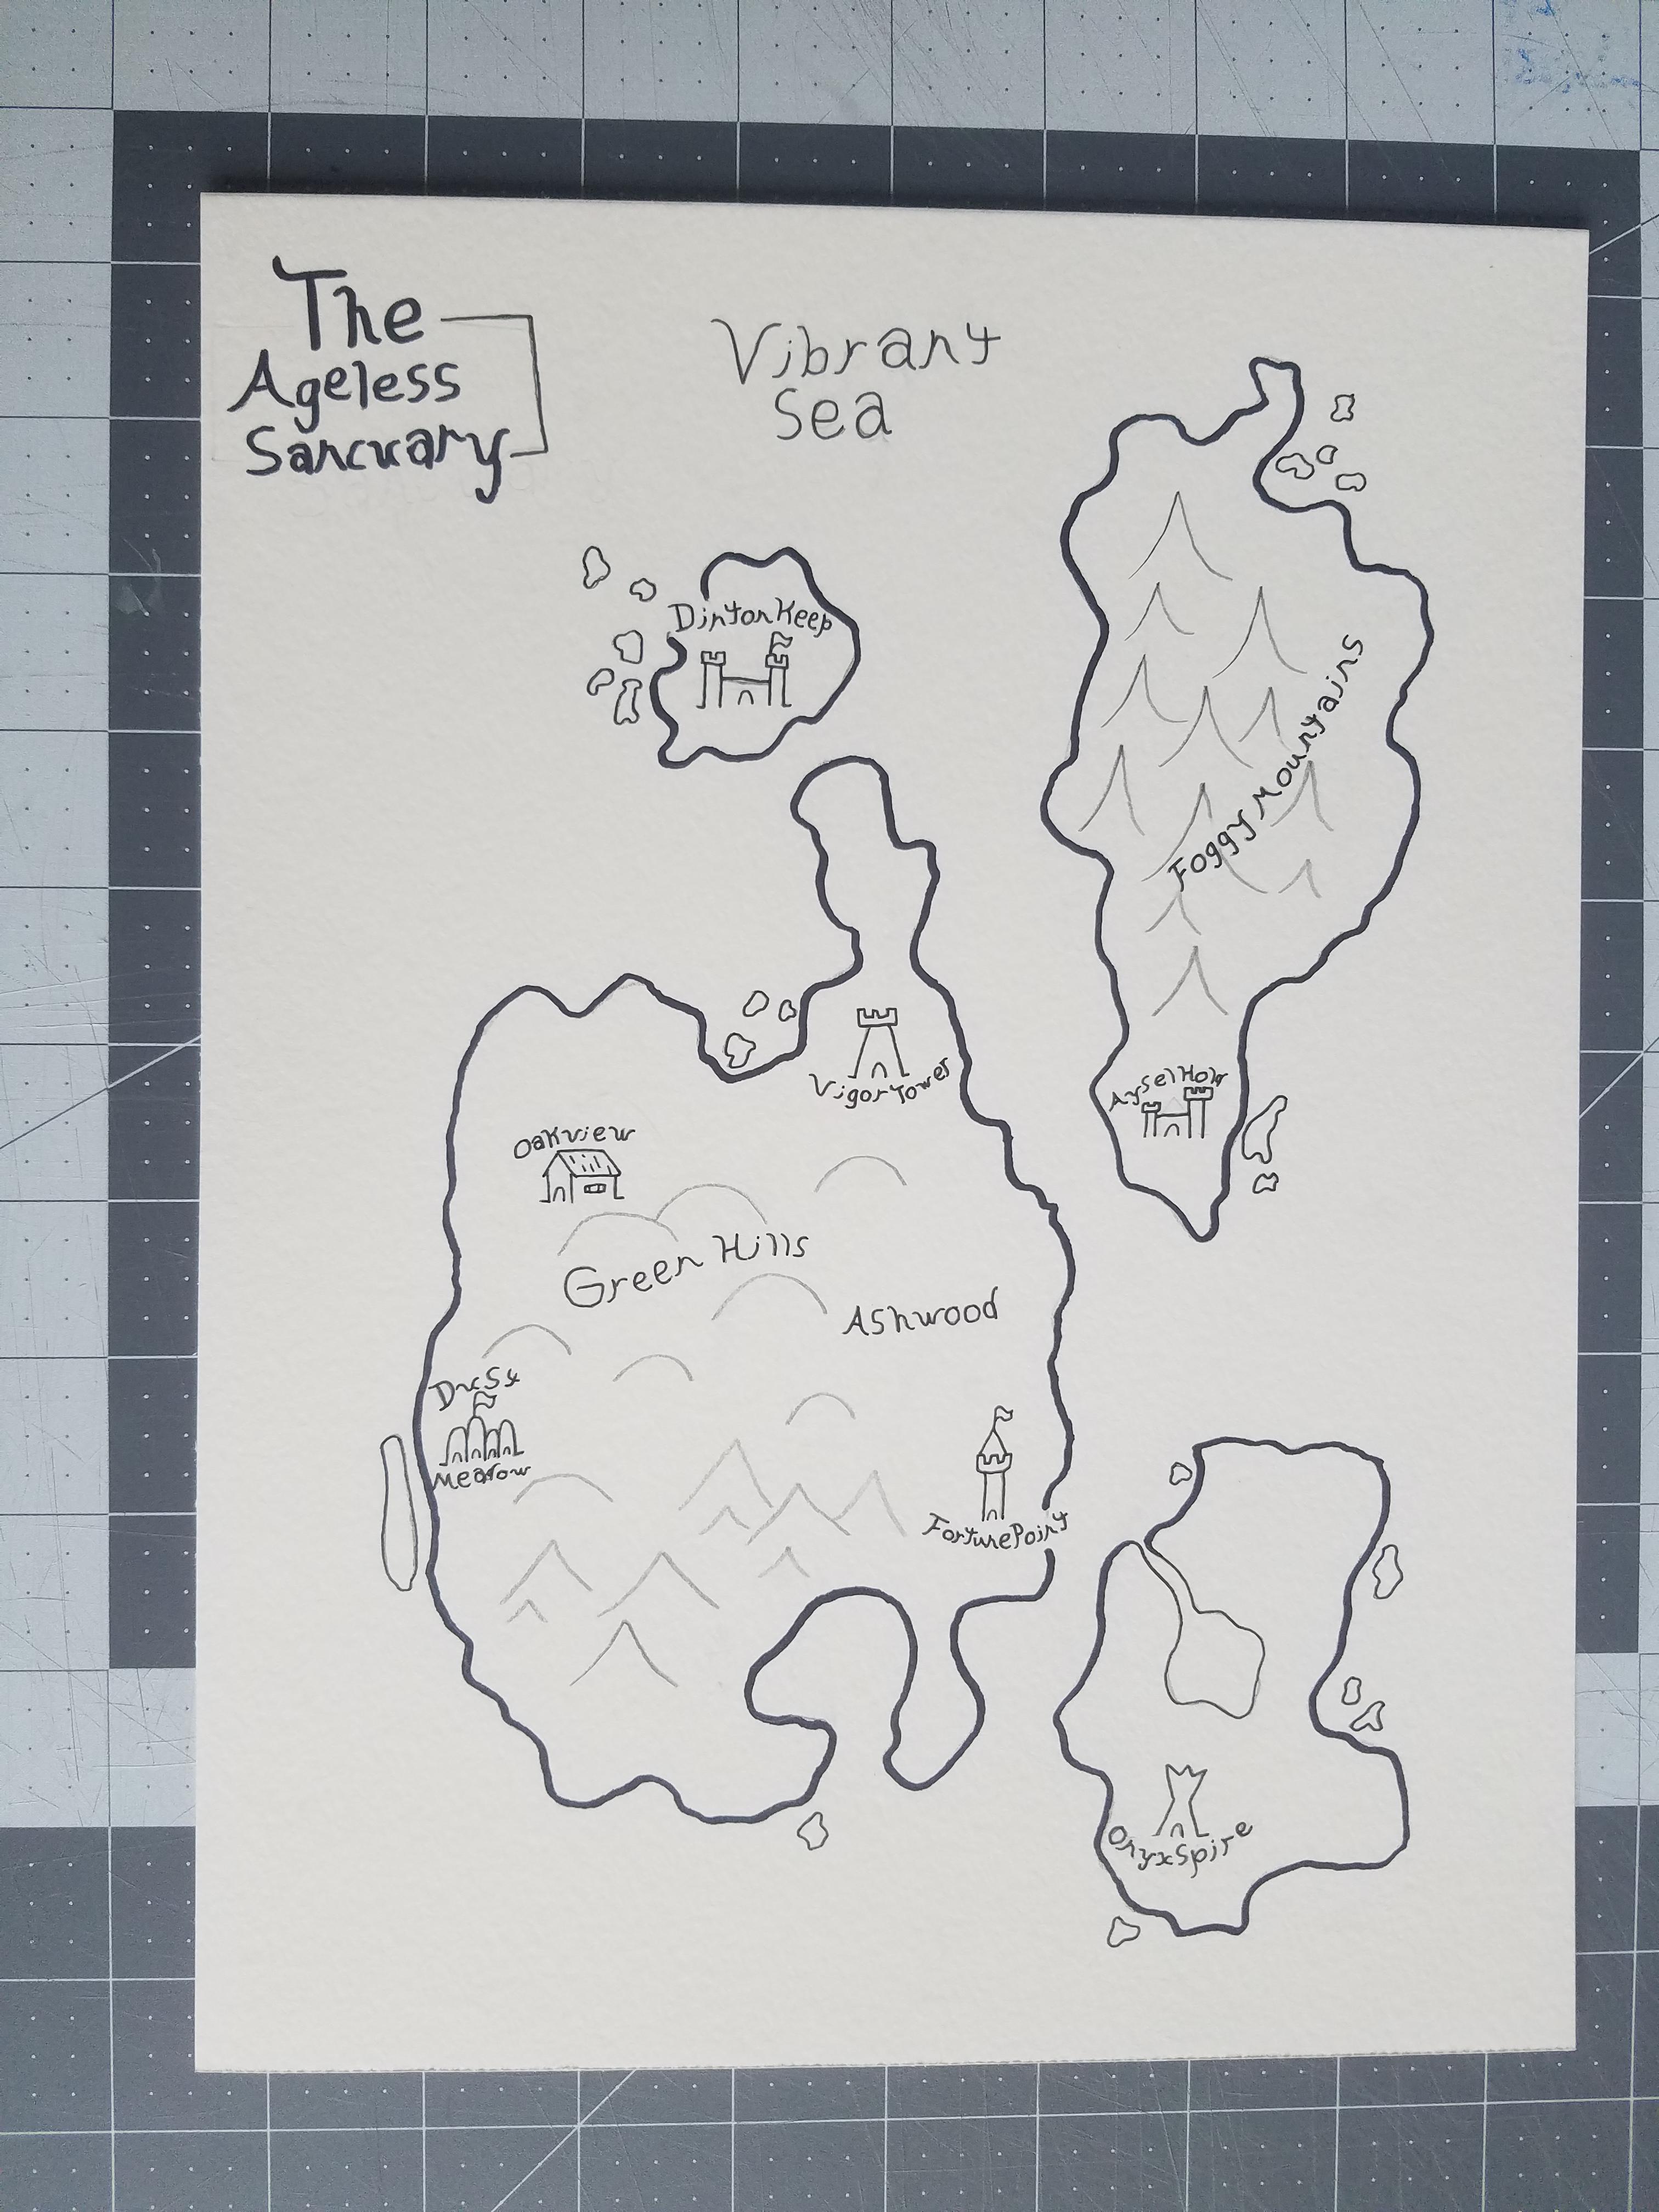 The
Ageless
Sancuary
Vibrant
Sea
Dinton Keep
Foggy Mountains
Vigor Tower
Aysel Hold
Oakview
Green Hills
Ashwood
Meadow
Fortune Point
Onyx Spire